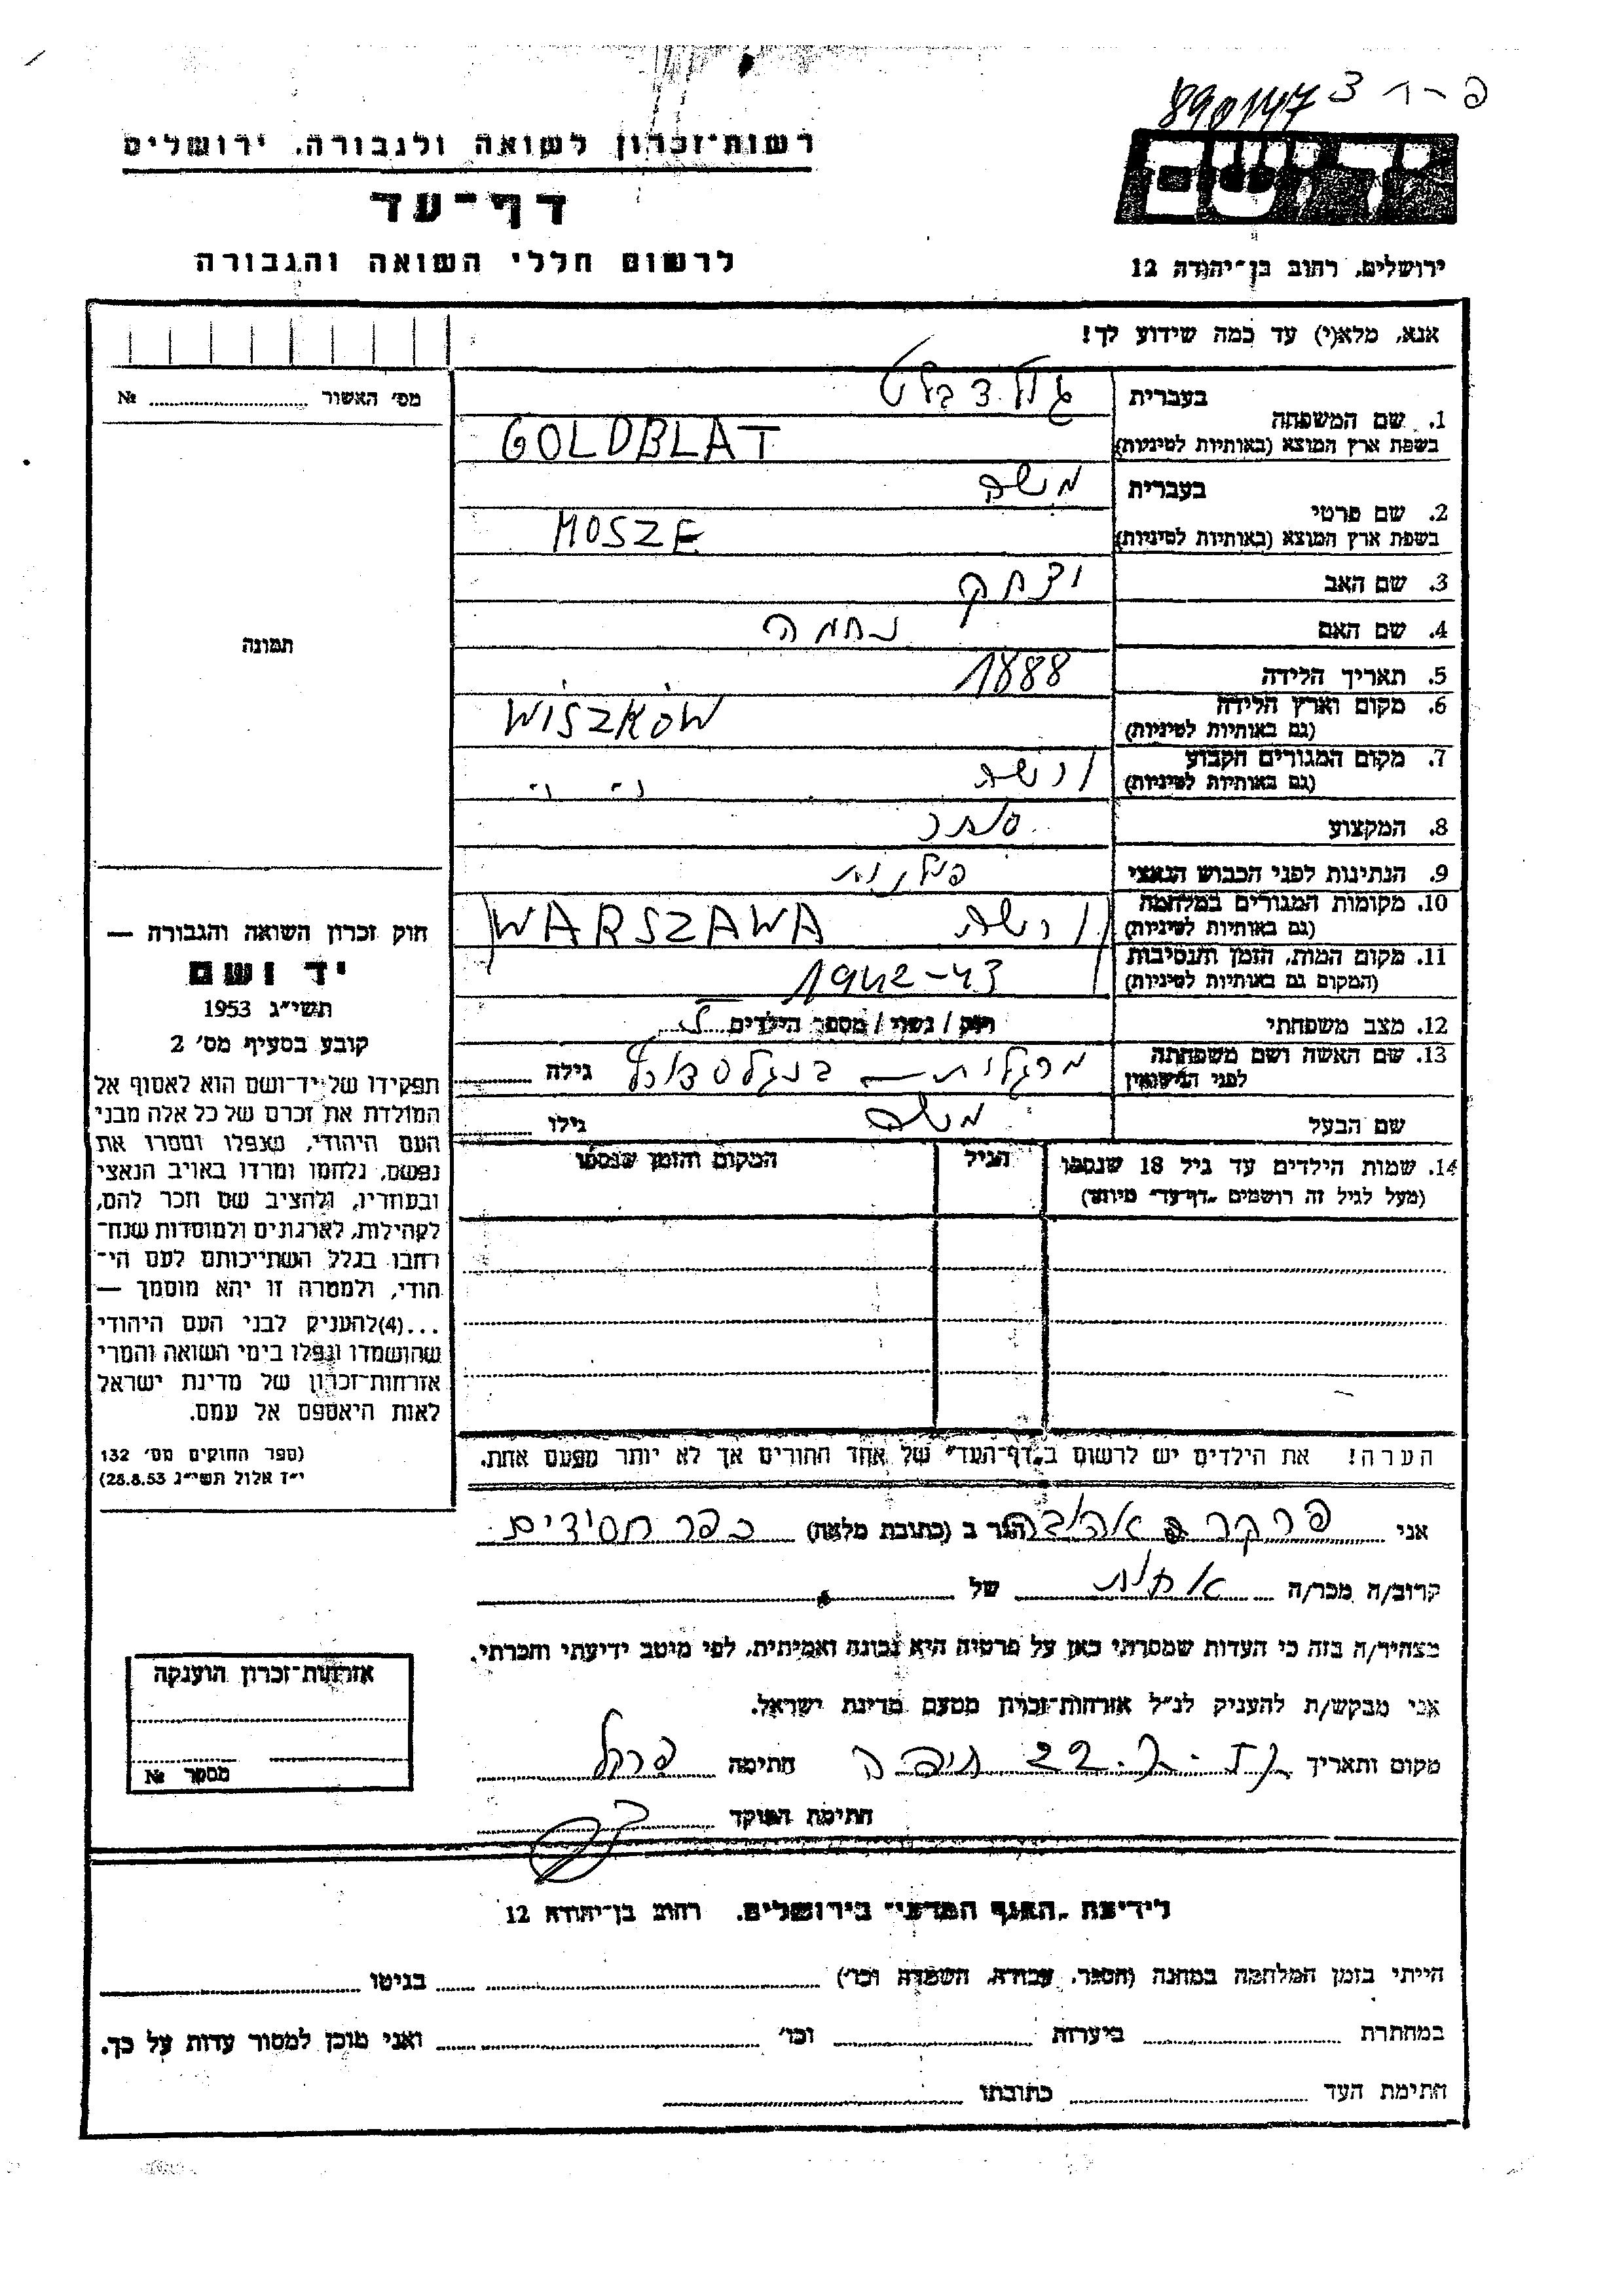 890147 פ-ו 3
רשות־זכרון לשואה ולגבורה, ירושלים
ד ף ־ ע ד
לרשום חללי השואה והגבורה
יד ושם
ירושלים, רחוב בן־יהודה 12
אנא, מלא(י) עד כמה שידוע לך!
מס׳ האשור № 
1. שם המשפחה
בעברית גולדבלט
בשפת ארץ המוצא (באותיות לטיניות) GOLDBLAT
2. שם פרטי
בעברית משה
בשפת ארץ המוצא (באותיות לטיניות) MOSZE
3. שם האב יצחק
4. שם האם נחמה
5. תאריך הלידה 1888
6. מקום וארץ הלידה
(גם באותיות לטיניות) WISZKÓW
7. מקום המגורים הקבוע ורשה
(גם באותיות לטיניות)
8. המקצוע סוחר
9. הנתינות לפני הכבוש הנאצי פולנית
10. מקומות המגורים במלחמה ורשה WARSZAWA
(גם באותיות לטיניות)
11. מקום המות, הזמן והנסיבות 1942-43
(המקום גם באותיות לטיניות)
12. מצב משפחתי רווק / נשוי / מספר הילדים
13. שם האשה ושם משפחתה
לפני הנישואין מרגלית גילה
שם הבעל משה גילו
14. שמות הילדים עד גיל 18 שנספו הגיל המקום והזמן שנספו
(מעל לגיל זה רושמים „דף־עד״ מיוחד)
הערה! את הילדים יש לרשום ב„דף־העד״ של אחד ההורים אך לא יותר מפעם אחת.
תמונה
חוק זכרון השואה והגבורה —
יד ושם
תשי״ג 1953
קובע בסעיף מס׳ 2
תפקידו של יד־ושם הוא לאסוף אל
המולדת את זכרם של כל אלה מבני
העם היהודי, שנפלו ומסרו את
נפשם, נלחמו ומרדו באויב הנאצי
ובעוזריו, ולהציב שם וזכר להם,
לקהילות, לארגונים ולמוסדות שנח־
רבו בגלל השתייכותם לעם הי־
הודי, ולמטרה זו יהא מוסמך —
...(4)להעניק לבני העם היהודי
שהושמדו ונפלו בימי השואה והמרי
אזרחות־זכרון של מדינת ישראל
לאות היאספם אל עמם.
(ספר החוקים מס׳ 132
י״ז אלול תשי״ג 28.8.53)
אני פרקר אהובה הגר ב (כתובת מלאה) כפר חסידים
קרוב/ה מכר/ה אחות של
מצהיר/ה בזה כי העדות שמסרתי כאן על פרטיה היא נכונה ואמיתית, לפי מיטב ידיעתי והכרתי.
אני מבקש/ת להעניק לנ״ל אזרחות־זכרון מטעם מדינת ישראל.
מקום ותאריך חיפה 22 חתימה
חתימת הפוקד
אזרחות־זכרון הוענקה
מספר №
לידיעת „האגף המדעי״ בירושלים. רחוב בן־יהודה 12
הייתי בזמן המלחמה במחנה (הסגר, עבודה, השמדה וכו׳) בגיטו
במחתרת ביערות וכו׳ ואני מוכן למסור עדות על כך.
חתימת העד כתובתו